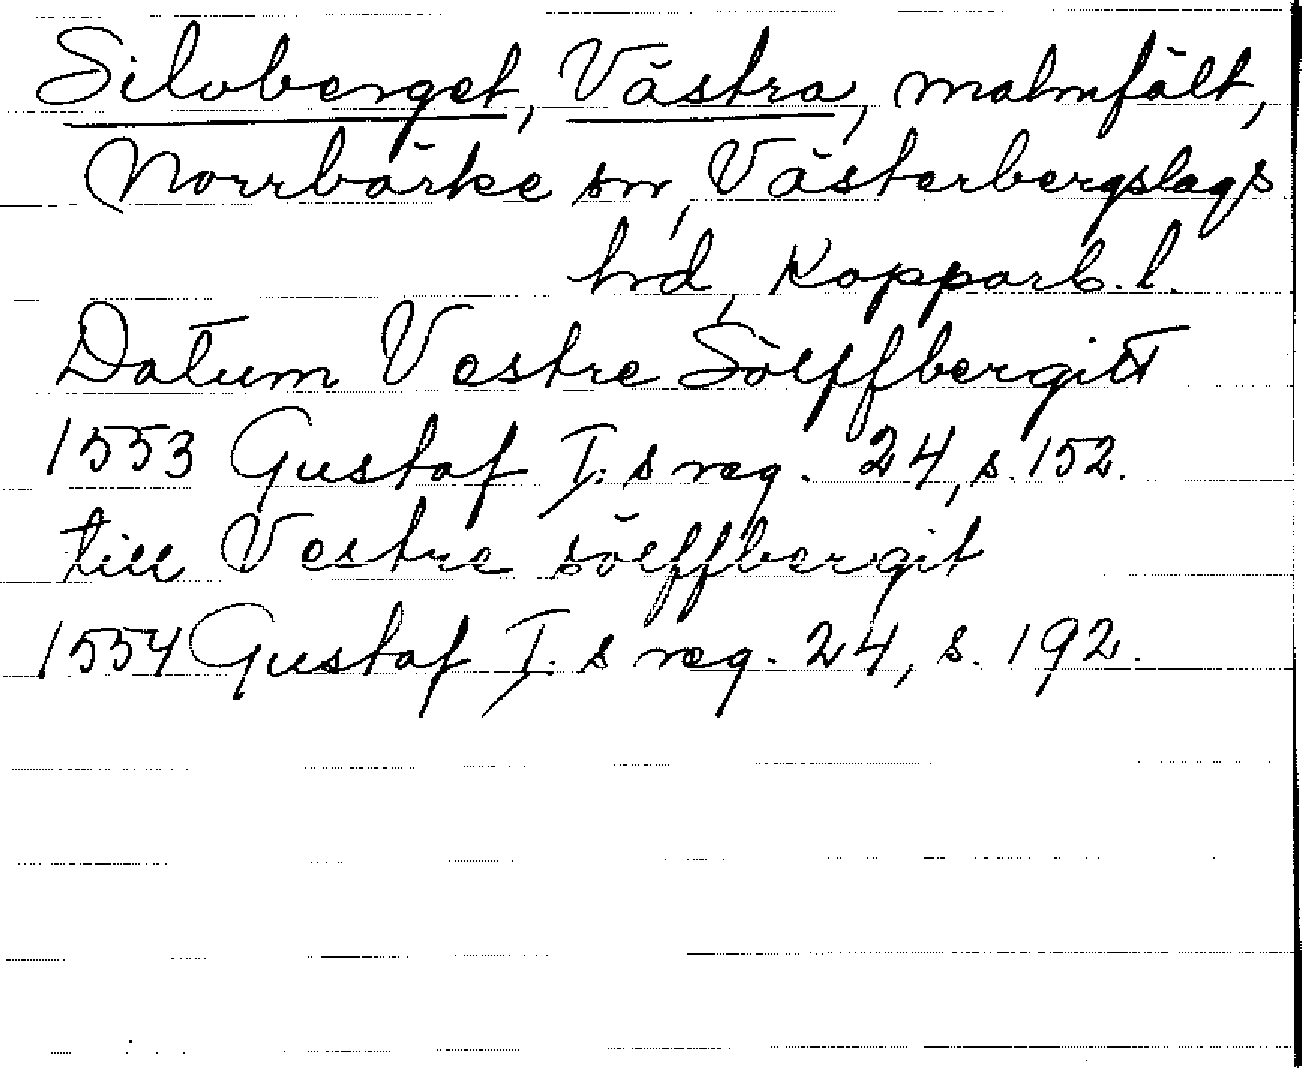 Silvberget, Västra, malmfält,
Norrbärke sn, Västerbergslags
hd, Kopparb. l.
Datum Vestre Sölffbergitt
1553 Gustaf I. s reg. 24, s. 152.
till Vestre sölffbergit
1554 Gustaf I. s reg. 24, s. 192.